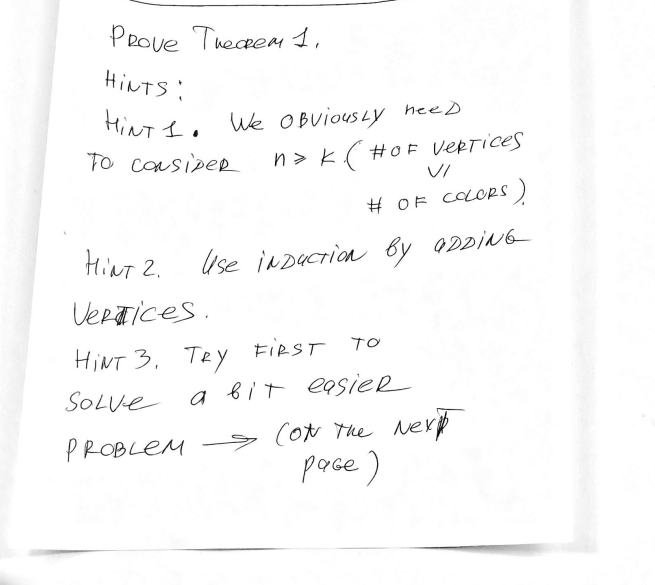 PROVE THEOREM 1.
HINTS:
HINT 1. We OBVIOUSLY NEED
TO CONSIDER n ≥ k (# OF VERTICES
∨/
# OF COLORS).
HINT 2. Use INDUCTION By ADDING
VERTICES.
HINT 3. TRY FIRST TO
SOLVE a bit easier
PROBLEM → (ON THE NEXT
page)